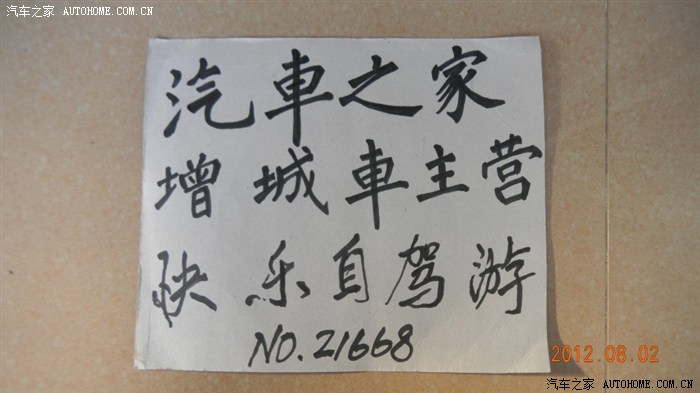 汽车之家 AUTOHOME.COM.CN
汽車之家
增城車主营
快乐自驾游
NO.21668
2012.08.02
汽车之家 AUTOHOME.COM.CN